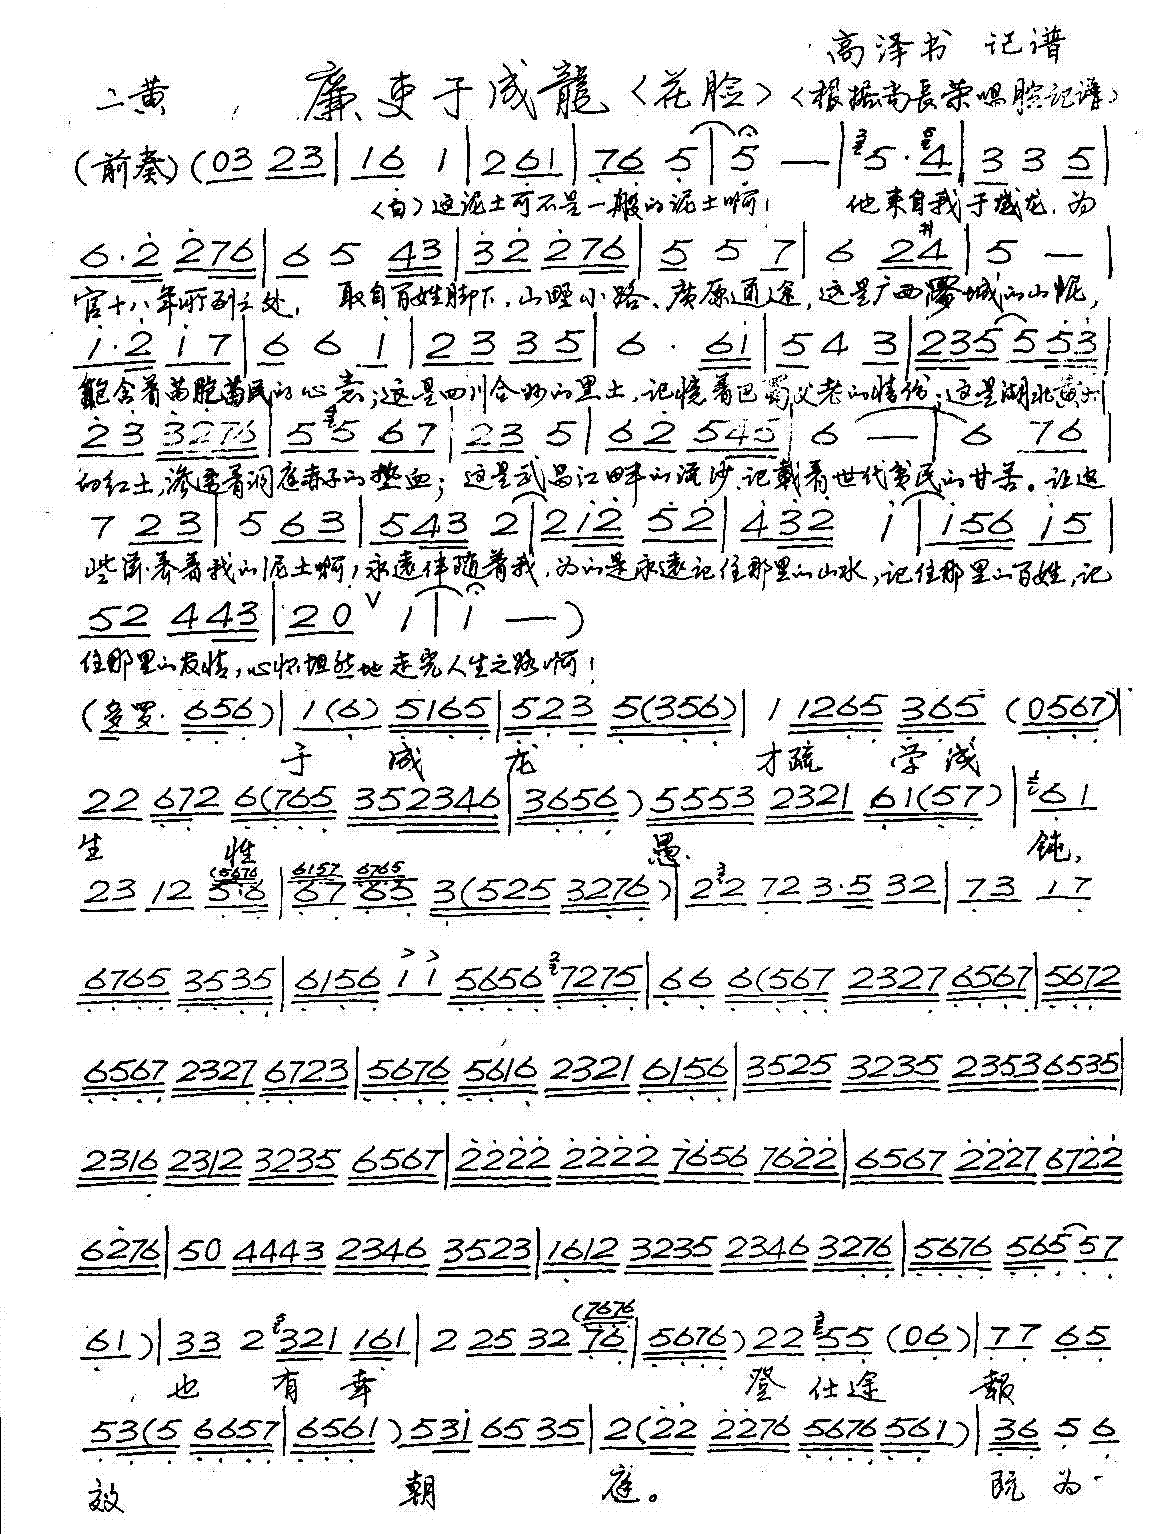 高泽书 记谱
二黄 廉吏于成龍〈花脸〉〈根据尚長荣唱腔记谱〉
(前奏)(03 23|16 1|2 61|76 5|5 —|5·4|3 3 5|
〈白〉这泥土可不是一般的泥土啊! 他来自我于成龙,为
6·2 276|6 5 43|32 276|5 5 7|6 24|5 —|
官十八年所到之处, 取自百姓脚下,山野小路、广原通途,这是广西罗城的山泥,
1·2 17|6 6 1|23 35|6 · 61|54 3|235 553|
饱含着苗胞苗民的心意;这是四川合州的黑土,记忆着巴蜀父老的情份;这是湖北黄州
23 3276|55 67|23 5|62 545|6 —|6 76|
的红土,渗透着洞庭赤子的热血;这是武昌江畔的流沙,记载着世代贫民的甘苦。让这
7 23|5 63|543 2|212 52|432 1|156 15|
些滋养着我的泥土啊,永远伴随着我,为的是永远记住那里的山水,记住那里的百姓,记
52 443|20 ∨ 1|1 —)
住那里的友情,心怀坦然地走完人生之路啊!
(多罗· 656)|1(6) 5165|523 5(356)|1 1265 365 (0567)|
于 成 龙 才疏 学浅
22 672 6(765 352346|3656) 5553 2321 61(57)|61
生 性 愚 钝,
(5676 6157 6765
23 12 5·6|67 65 3(525 3276)|22 72 3·5 32|73 17
6765 3535|6156 11 5656 7275|66 6(567 2327 6567|5672
6567 2327 6723|5676 5616 2321 6156|3525 3235 2353 6535|
2316 2312 3235 6567|2222 2222 7656 7622|6567 2227 6722
6276|50 4443 2346 3523|1612 3235 2346 3276|5676 565 57
(7676
61)|33 2 321 161|2 25 32 76|5676) 22 55 (06)|77 65
也 有 幸 登 仕途 報
53(5 6657|6561) 531 65 35|2(22 2276 5676 561)|36 5 6
效 朝 庭。 既 为